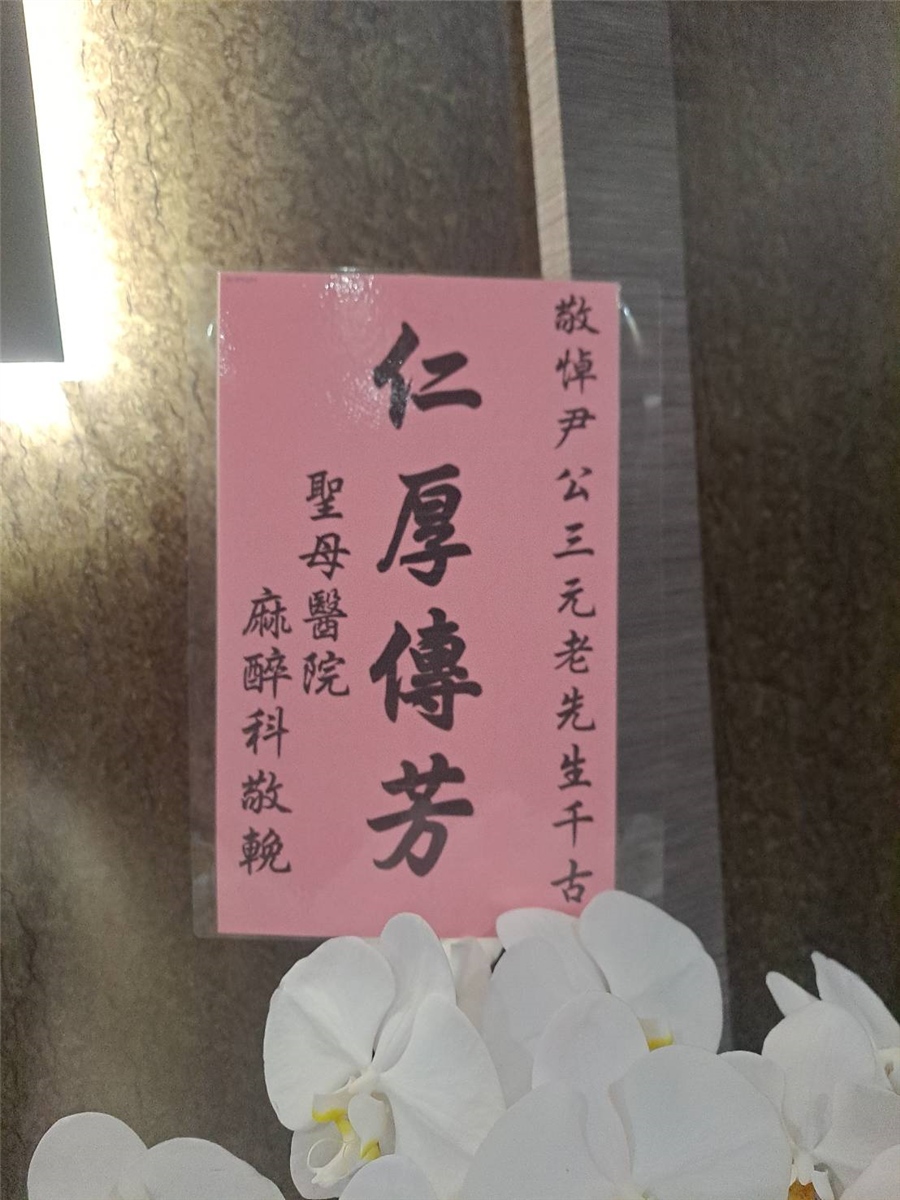 敬悼尹公三元老先生千古
仁厚傳芳
聖母醫院
麻醉科敬輓